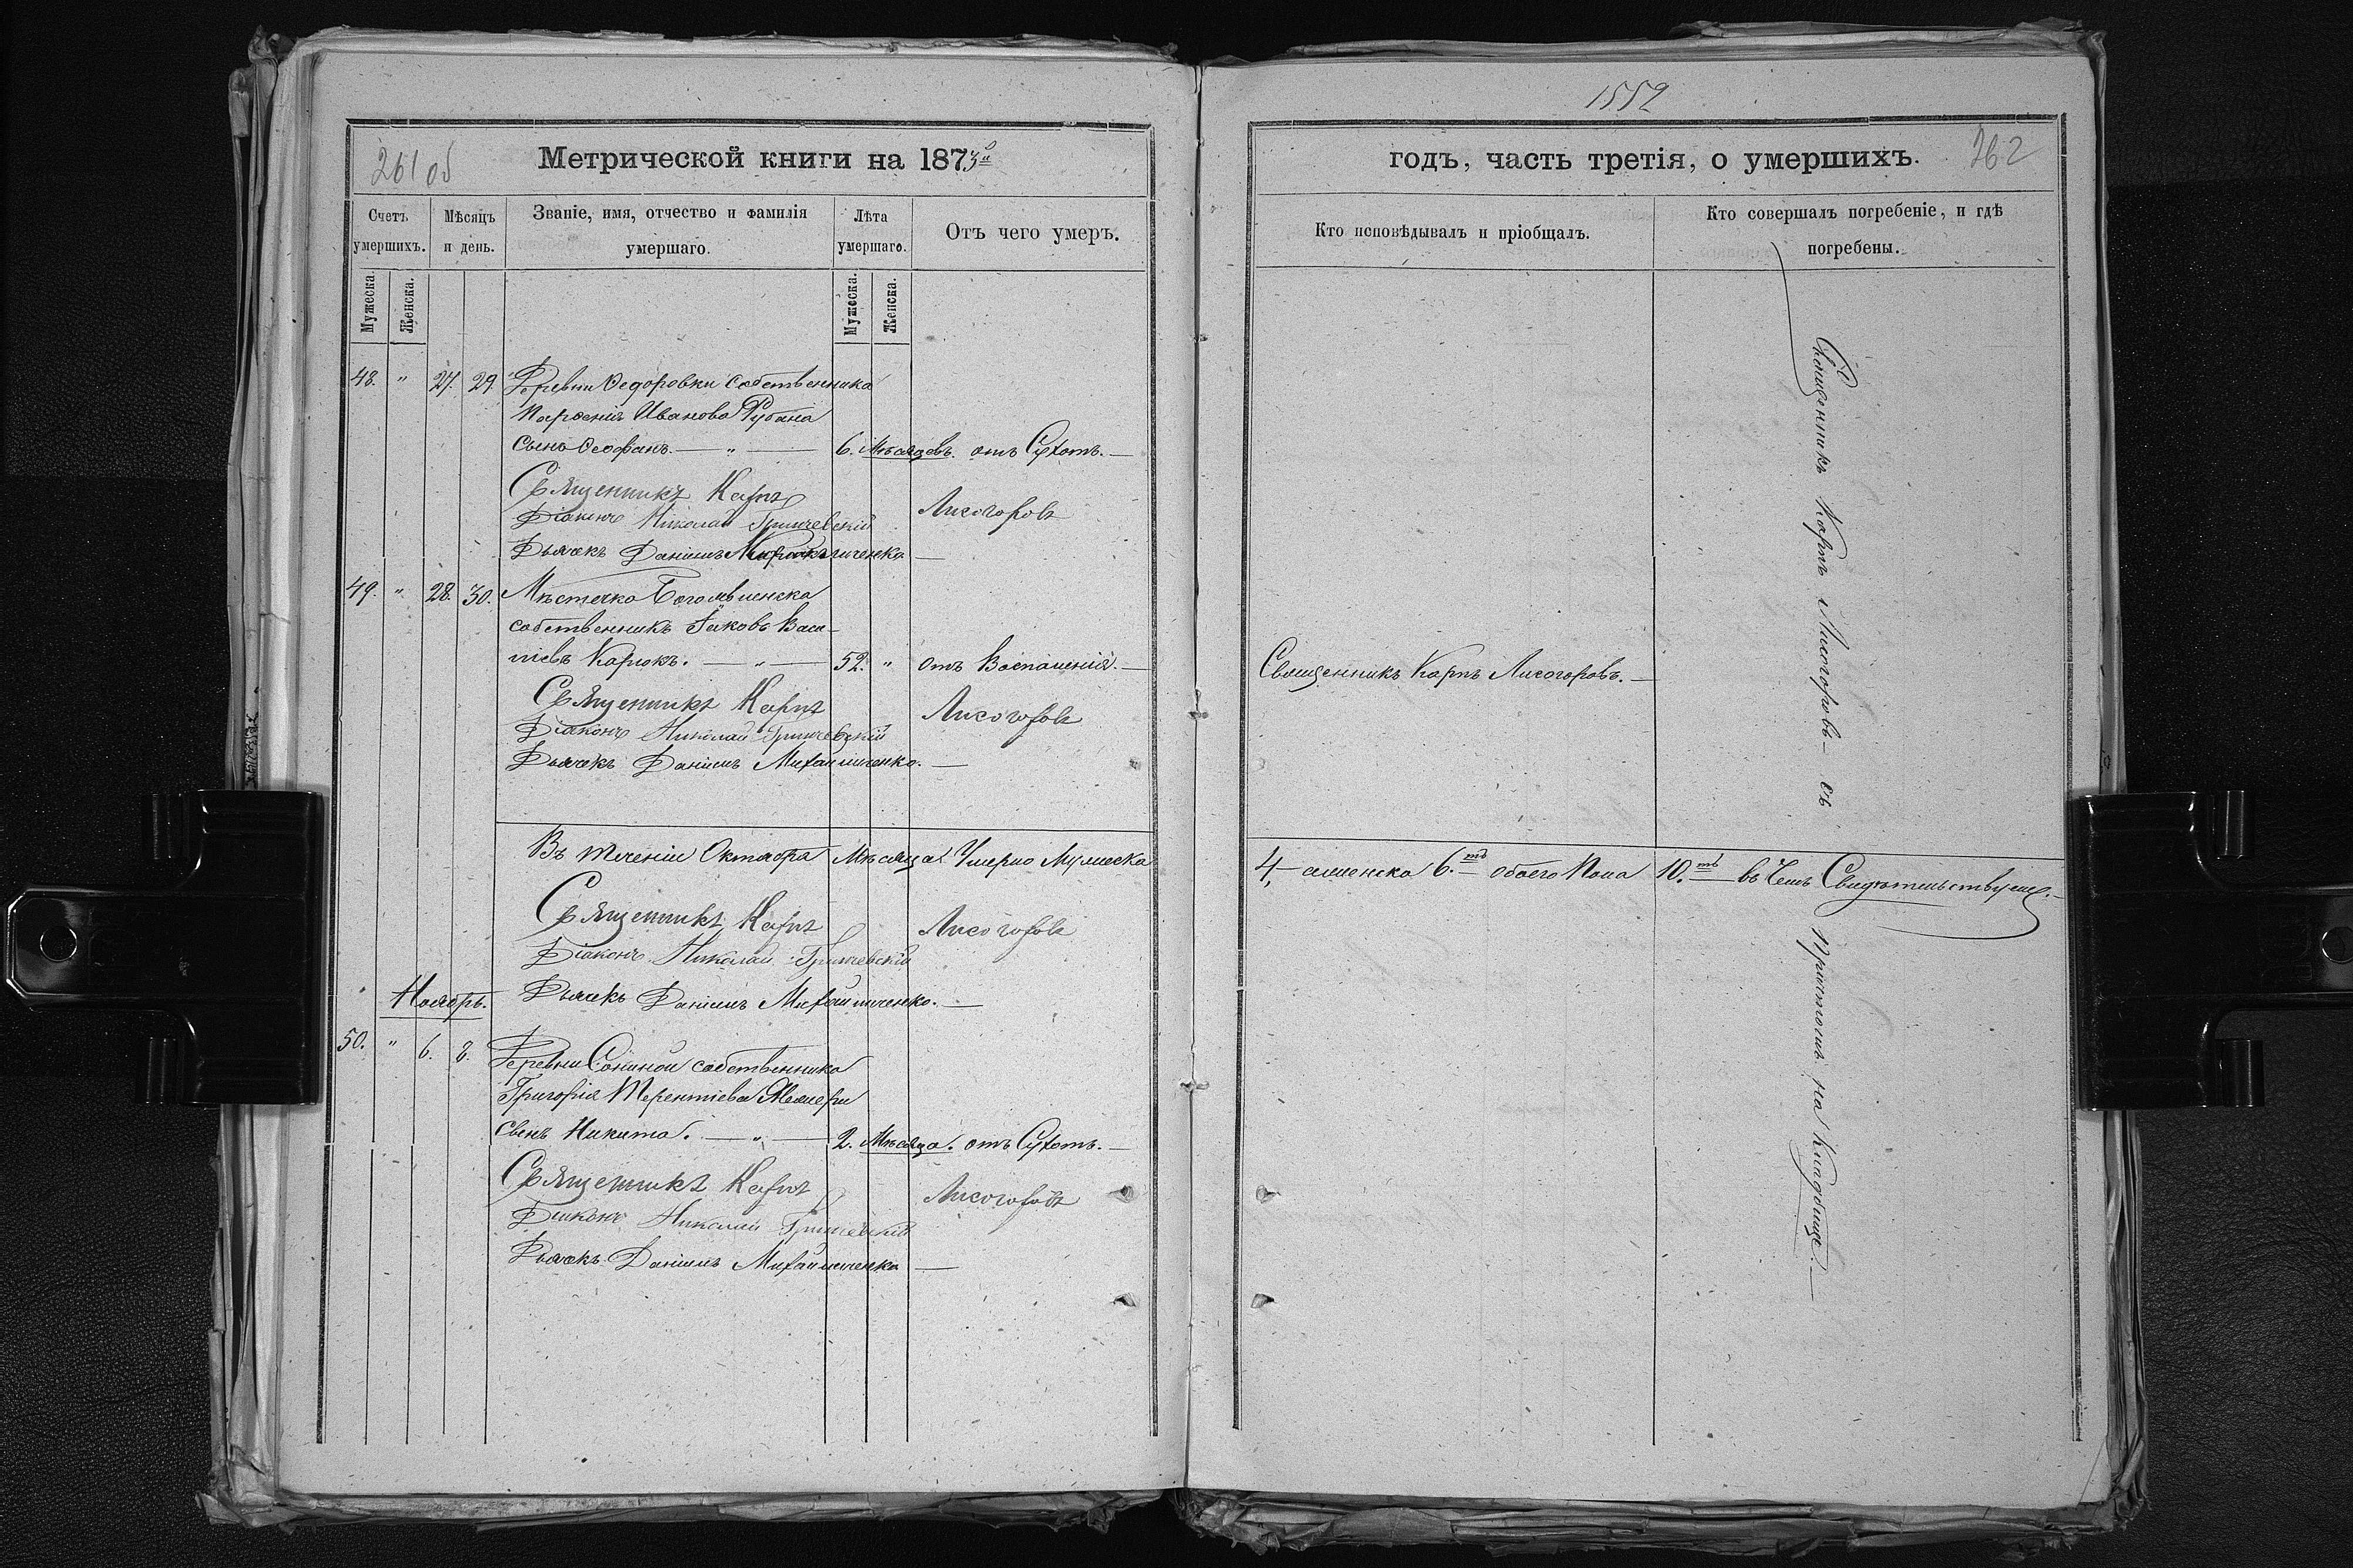 1552
261 об
Метрической книги на 1873й
годъ, часть третія, о умершихъ.
262
Счетъ умершихъ.
Мѣсяцъ и день.
Званіе, имя, отчество и фамилія умершаго.
Лѣта умершаго.
Отъ чего умеръ.
Кто исповѣдывалъ и пріобщалъ.
Кто совершалъ погребеніе, и гдѣ погребены.
Мужеска.
Женска.
Мужеска.
Женска.
48. " 27. 29. Деревни Ѳедоровки собственника
Парѳенія Иванова Рубана
сынъ Ѳеофанъ. — " — 6. Мѣсяцовъ. отъ Сухотъ. —
Священникъ Карпъ Лисогоровъ
Діаконъ Николай Гришевскій
Дьячекъ Даніилъ Михайличенко. —
49. " 28. 30. Мѣстечка Богоявленска
собственникъ Іаковъ Васи-
ліевъ Карюкъ. — " — 52. " отъ Воспаленія. —
Священникъ Карпъ Лисогоровъ. —
Священникъ Карпъ Лисогоровъ
Діаконъ Николай Гришевскій
Дьячекъ Даніилъ Михайличенко. —
Въ теченіи Октября Мѣсяца Умерло Мужеска 4, — а женска 6.ть обоего Пола 10.ть — въ чемъ Свидѣтельствуемъ. —
Священникъ Карпъ Лисогоровъ
Діаконъ Николай Гришевскій
Дьячекъ Даніилъ Михайличенко. —
Ноябрь.
50. " 6. 8. Деревни Сониной собственника
Григорія Терентіева
сынъ Никита. — " — 2. Мѣсяца. отъ Сухотъ. —
Священникъ Карпъ Лисогоровъ
Діаконъ Николай Гришевскій
Дьячекъ Даніилъ Михайличенко —
Священникъ Карпъ Лисогоровъ — съ
причтомъ на Кладбище. —